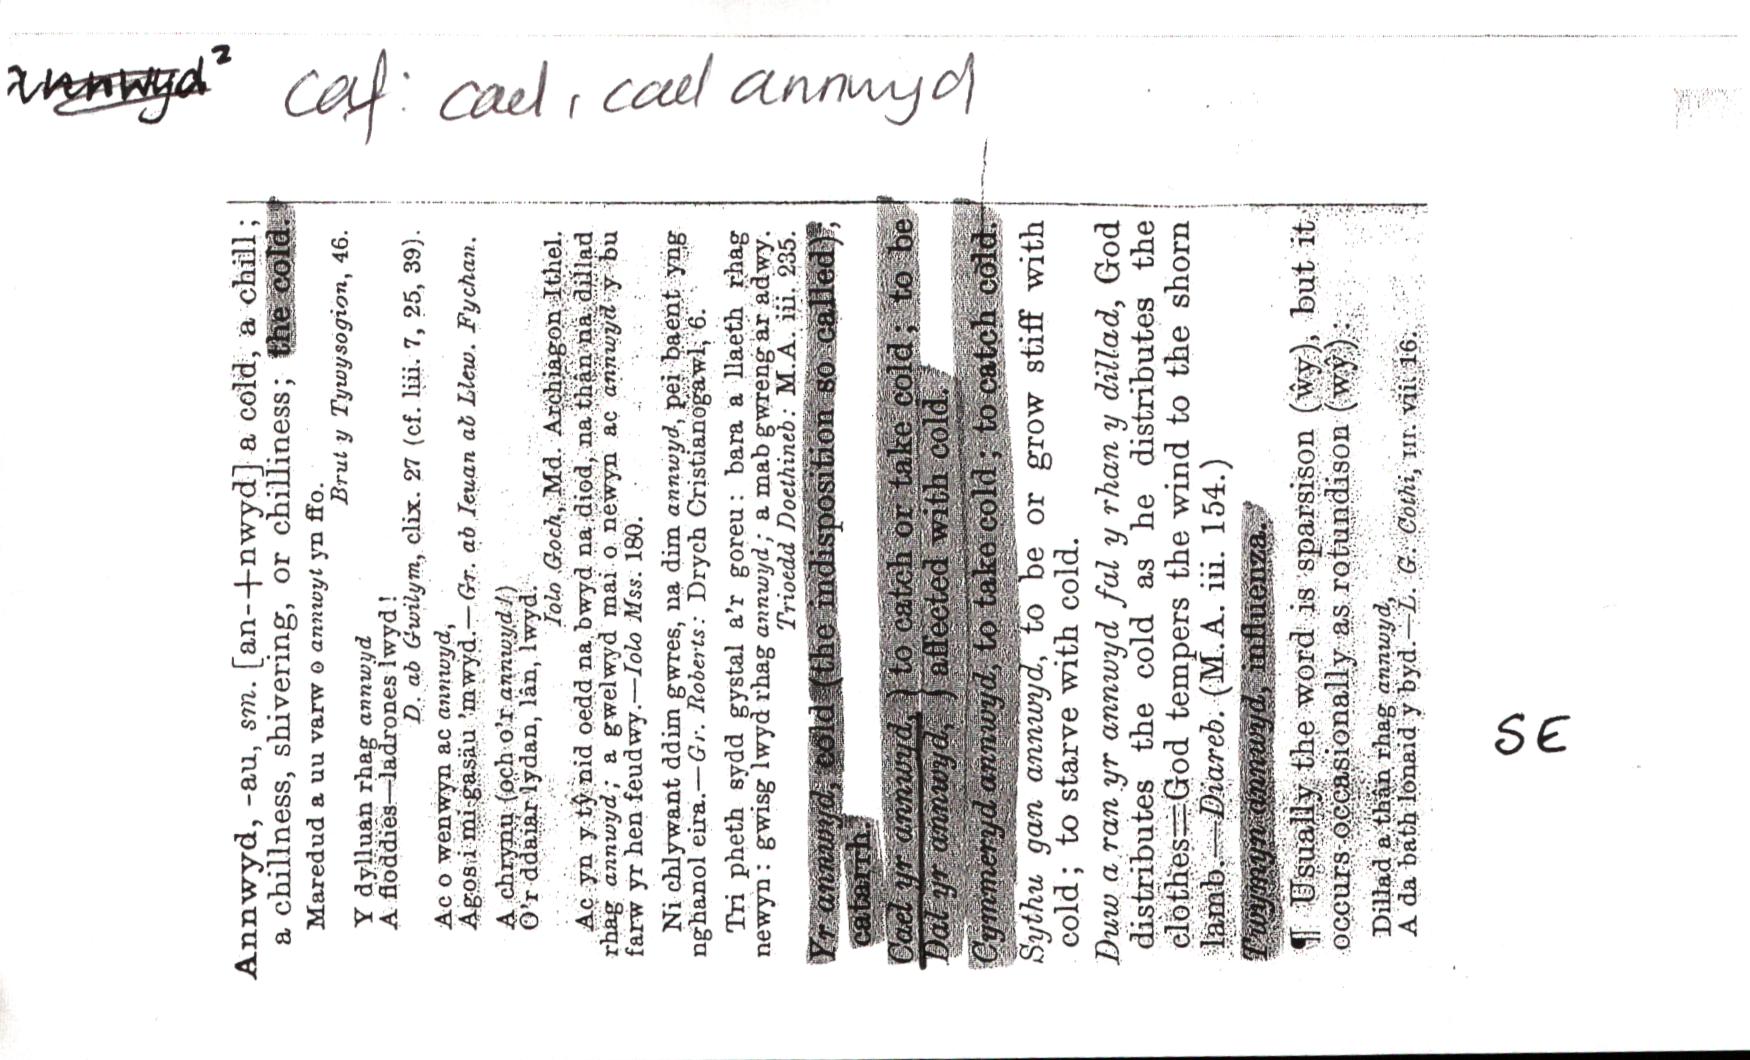 annwyd²
caf: cael, cael annwyd
Annwyd, -au, sm. [an-+nwyd] a cold, a chill;
a chillness, shivering, or chilliness; the cold.
Maredud a uu varw o annwyt yn ffo.
Brut y Tywysogion, 46.
Y dylluan rhag annwyd
A floddies—ladrones lwyd!
D. ab Gwilym, clix. 27 (cf. liii. 7, 25, 39).
Ac o wenwyn ac annwyd,
Agos i mi gasäu 'mwyd.—Gr. ab Ieuan ab Llew. Fychan.
A chrynu (och o'r annwyd!)
O'r ddaiar lydan, lân, lwyd.
Iolo Goch, Md. Archiagon Ithel.
Ac yn y tŷ nid oedd na bwyd na diod, na thân na dillad
rhag annwyd; a gwelwyd mai o newyn ac annwyd y bu
farw yr hen feudwy.—Iolo Mss. 180.
Ni chlywant ddim gwres, na dim annwyd, pei baent yng
nghanol eira.—Gr. Roberts: Drych Cristianogawl, 6.
Tri pheth sydd gystal a'r goreu: bara a llaeth rhag
newyn: gwisg lwyd rhag annwyd; a mab gwreng ar adwy.
Trioedd Doethineb: M.A. iii. 235.
Yr annwyd, cold (the indisposition so called);
catarrh.
Cael yr annwyd, } to catch or take cold; to be
Dal yr annwyd, } affected with cold.
Cymmeryd annwyd, to take cold; to catch cold.
Sythu gan annwyd, to be or grow stiff with
cold; to starve with cold.
Duw a ran yr annwyd fal y rhan y dillad, God
distributes the cold as he distributes the
clothes=God tempers the wind to the shorn
lamb.—Diareb. (M.A. iii. 154.)
Twymyn annwyd, influenza.
¶ Usually the word is sparsison (ŵy), but it
occurs occasionally as rotundison (wŷ):
Dillad a thân rhag annwyd,
A da bath lonaid y byd.—L. G. Cothi, III. vii. 16.
SE